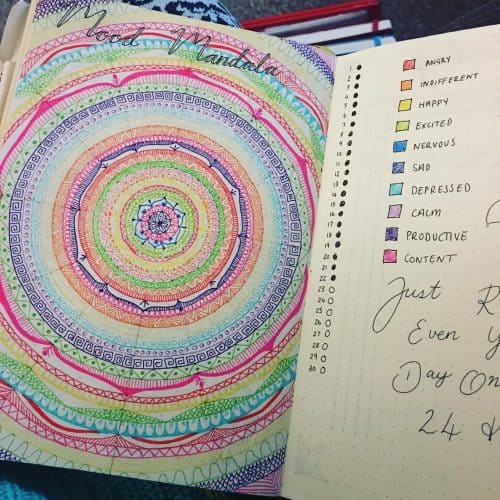 Mood Mandala
1
2
3
4
5
6
7
8
9
10
11
12
13
14
15
16
17
18
19
20
21
22
23
24
25
26
27
28
29
30
ANGRY
INDIFFERENT
HAPPY
EXCITED
NERVOUS
SAD
DEPRESSED
CALM
PRODUCTIVE
CONTENT
Just R
Even Y
Day On
24